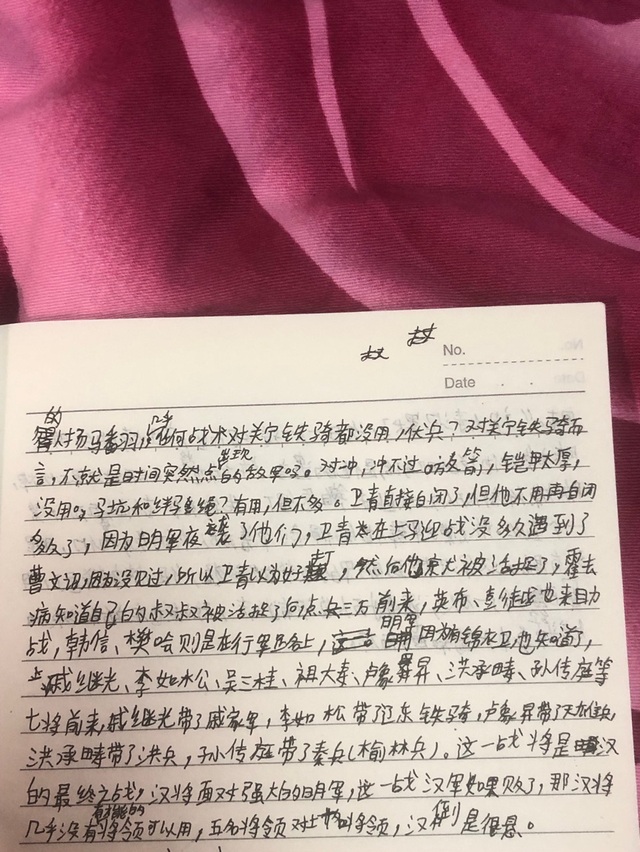 No.
Date
的
人扬马番羽,几乎任何战术对关宁铁骑都没用,伏兵?对关宁铁骑而
言,不就是时间突然点出现的敌军吗。对冲,冲不过。放箭,铠甲太厚,
没用。马坑和绊马绳?有用,但不多。卫青直接自闭了,但他不用再自闭
多久了,因为明军夜袭了他们,卫青在上马迎战没多久遇到了
曹文诏,因为没见过,所以卫青以为好打,然后他就被活捉了,霍去
病知道自己的叔叔被活捉了后点兵三万前来,英布、彭越也来助
战,韩信、樊哙则是在行军路上,明军因为有锦衣卫也知道了,
上戚继光、李如松、吴三桂、祖大寿、卢象昇、洪承畴、孙传庭等
七将前来,戚继光带了戚家军,李如松带了辽东铁骑,卢象昇带了天雄兵,
洪承畴带了洪兵,孙传庭带了秦兵(榆林兵)。这一战将是汉
的最终之战,汉将面对强大的明军,这一战汉军如果败了,那汉将
几乎没有有能的将领可以用,五名将领对上十名将领,汉倒是很悬。